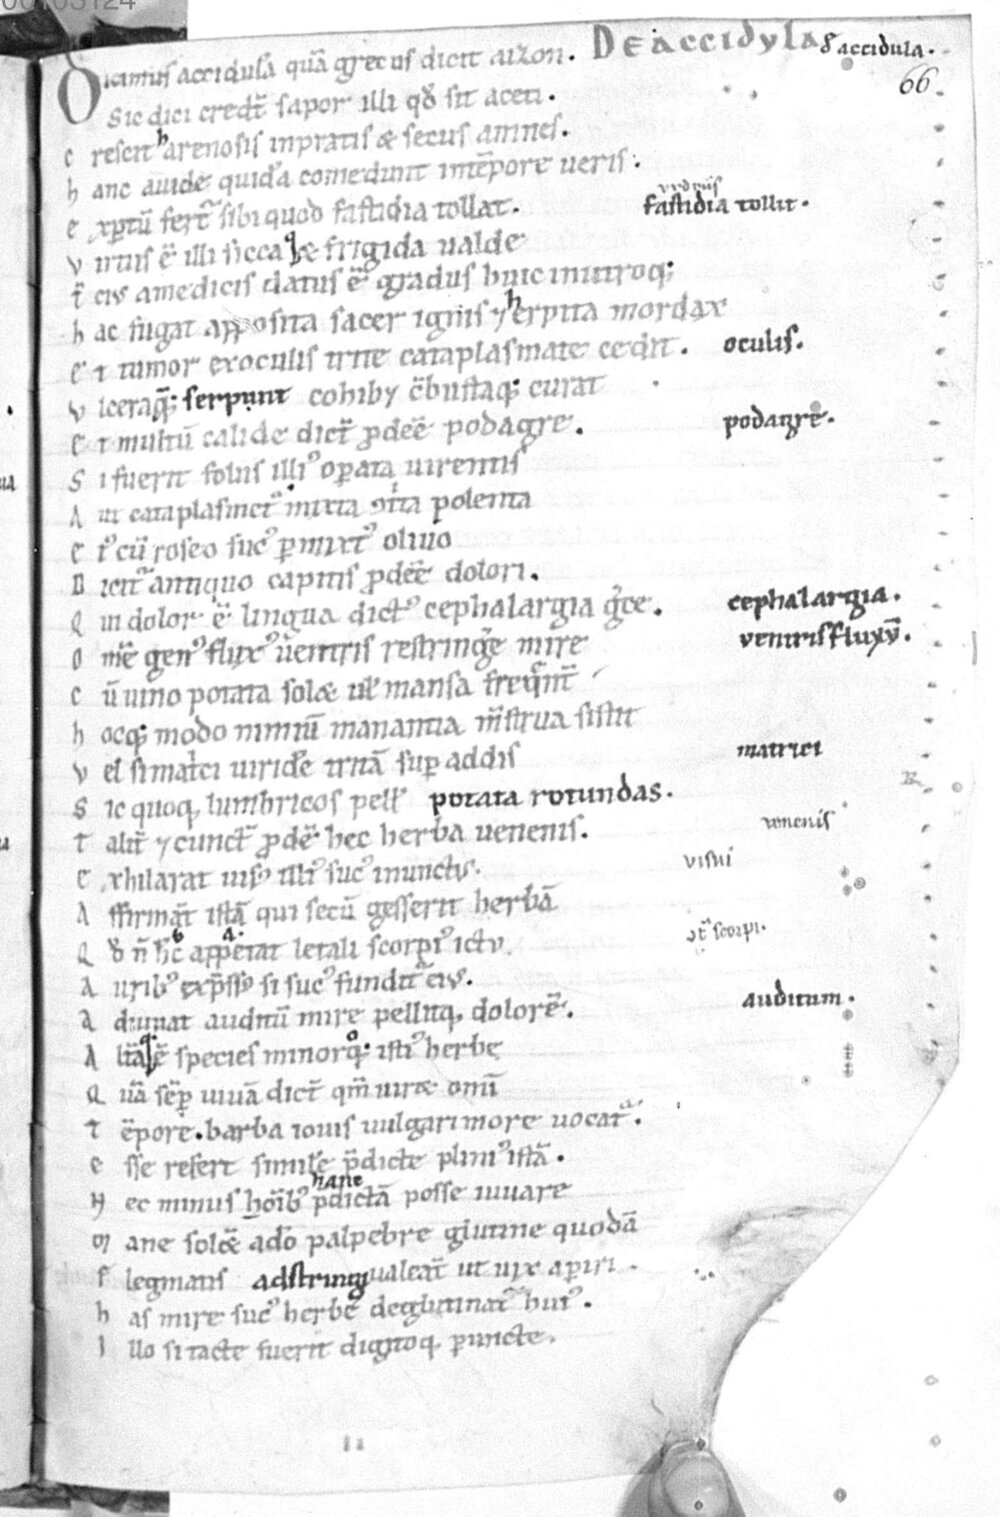 00103124
Dicimus accidulā quā grecus dicit aizon. DE ACCIDYLA accidula.
Sic dici credit̄ sapor illi qđ sit aceti. 66
c rescit arenosis inpratis & secus amnes.
h anc auide quidā comedunt intēpore ueris.
e xptū fert̄ sibi quod fastidia tollat. fastidia tollit.
v irtus ē illi sicca & frigida ualde
t̄ cius amedicis datus ē gradus huic inutroq;
h ac fugat apposita sacer ignis ⁊ herpita mordax
E t tumor exoculis trite cataplasmate cedit. oculis.
v lceraq; serpunt cohiby c̄bustaq; curat
E t multū calide dict̄ ꝓdeē podagre. podagre.
S i fuerit folus illiꝰ oꝑata uirentis
A ut cataplasmet̄ mixta ꝯtrita polenta
E tꝰ cū roseo sucꝰ ꝑmixtꝰ oliuo
D icit̄ antiquo capitis ꝓdeē dolori.
Q ui dolor ē lingua dictꝰ cephalargia ḡce. cephalargia.
O mē genꝰ fluxꝰ uentris restringe mire uentris fluxū.
C ū uino potata solæ uł mansa freqūt̄
h ocq; modo nimiū manantia m̄strua sistit
v el si mat̄ci uiridē tritā suꝑ addis matrici
S ic quoq, lumbricos pell̄ potata rotundas.
T alit̄ ⁊ cunct̄ ꝓdē hec herba uenenis. uenenis
E xhilarat uisꝰ illiꝰ sucꝰ inunctus. visui
A ffirmāt istā qui secū gesserit herbā
Q đ n̄ hc̄ appetat letali scorpiꝰ ictu. ꝯt̄ scorpi.
A uribꝰ exp̄ssꝰ si sucꝰ fundit̄ eius.
A diuuat auditū mire pellitq, dolorē. auditum.
A ltā ē species minorq; istiꝰ herbe
Q uā sēꝑ uiuā dict̄ qm̄ uiræ omī
T ēpore. barba iouis uulgari more uocat̄.
E sse refert similē p̄dicte pliniꝰ istā.
H ec minus hoībꝰ p̄dictā posse iuuare
hanc
M ane solēt ađo palpebre glutine quodā
F legmatis adstringi ualeāt ut uix aꝑiri.
h as mire sucꝰ herbe deglutinat̄ huiꝰ.
I llo si tacte fuerit dignoq, ꝑuncte.